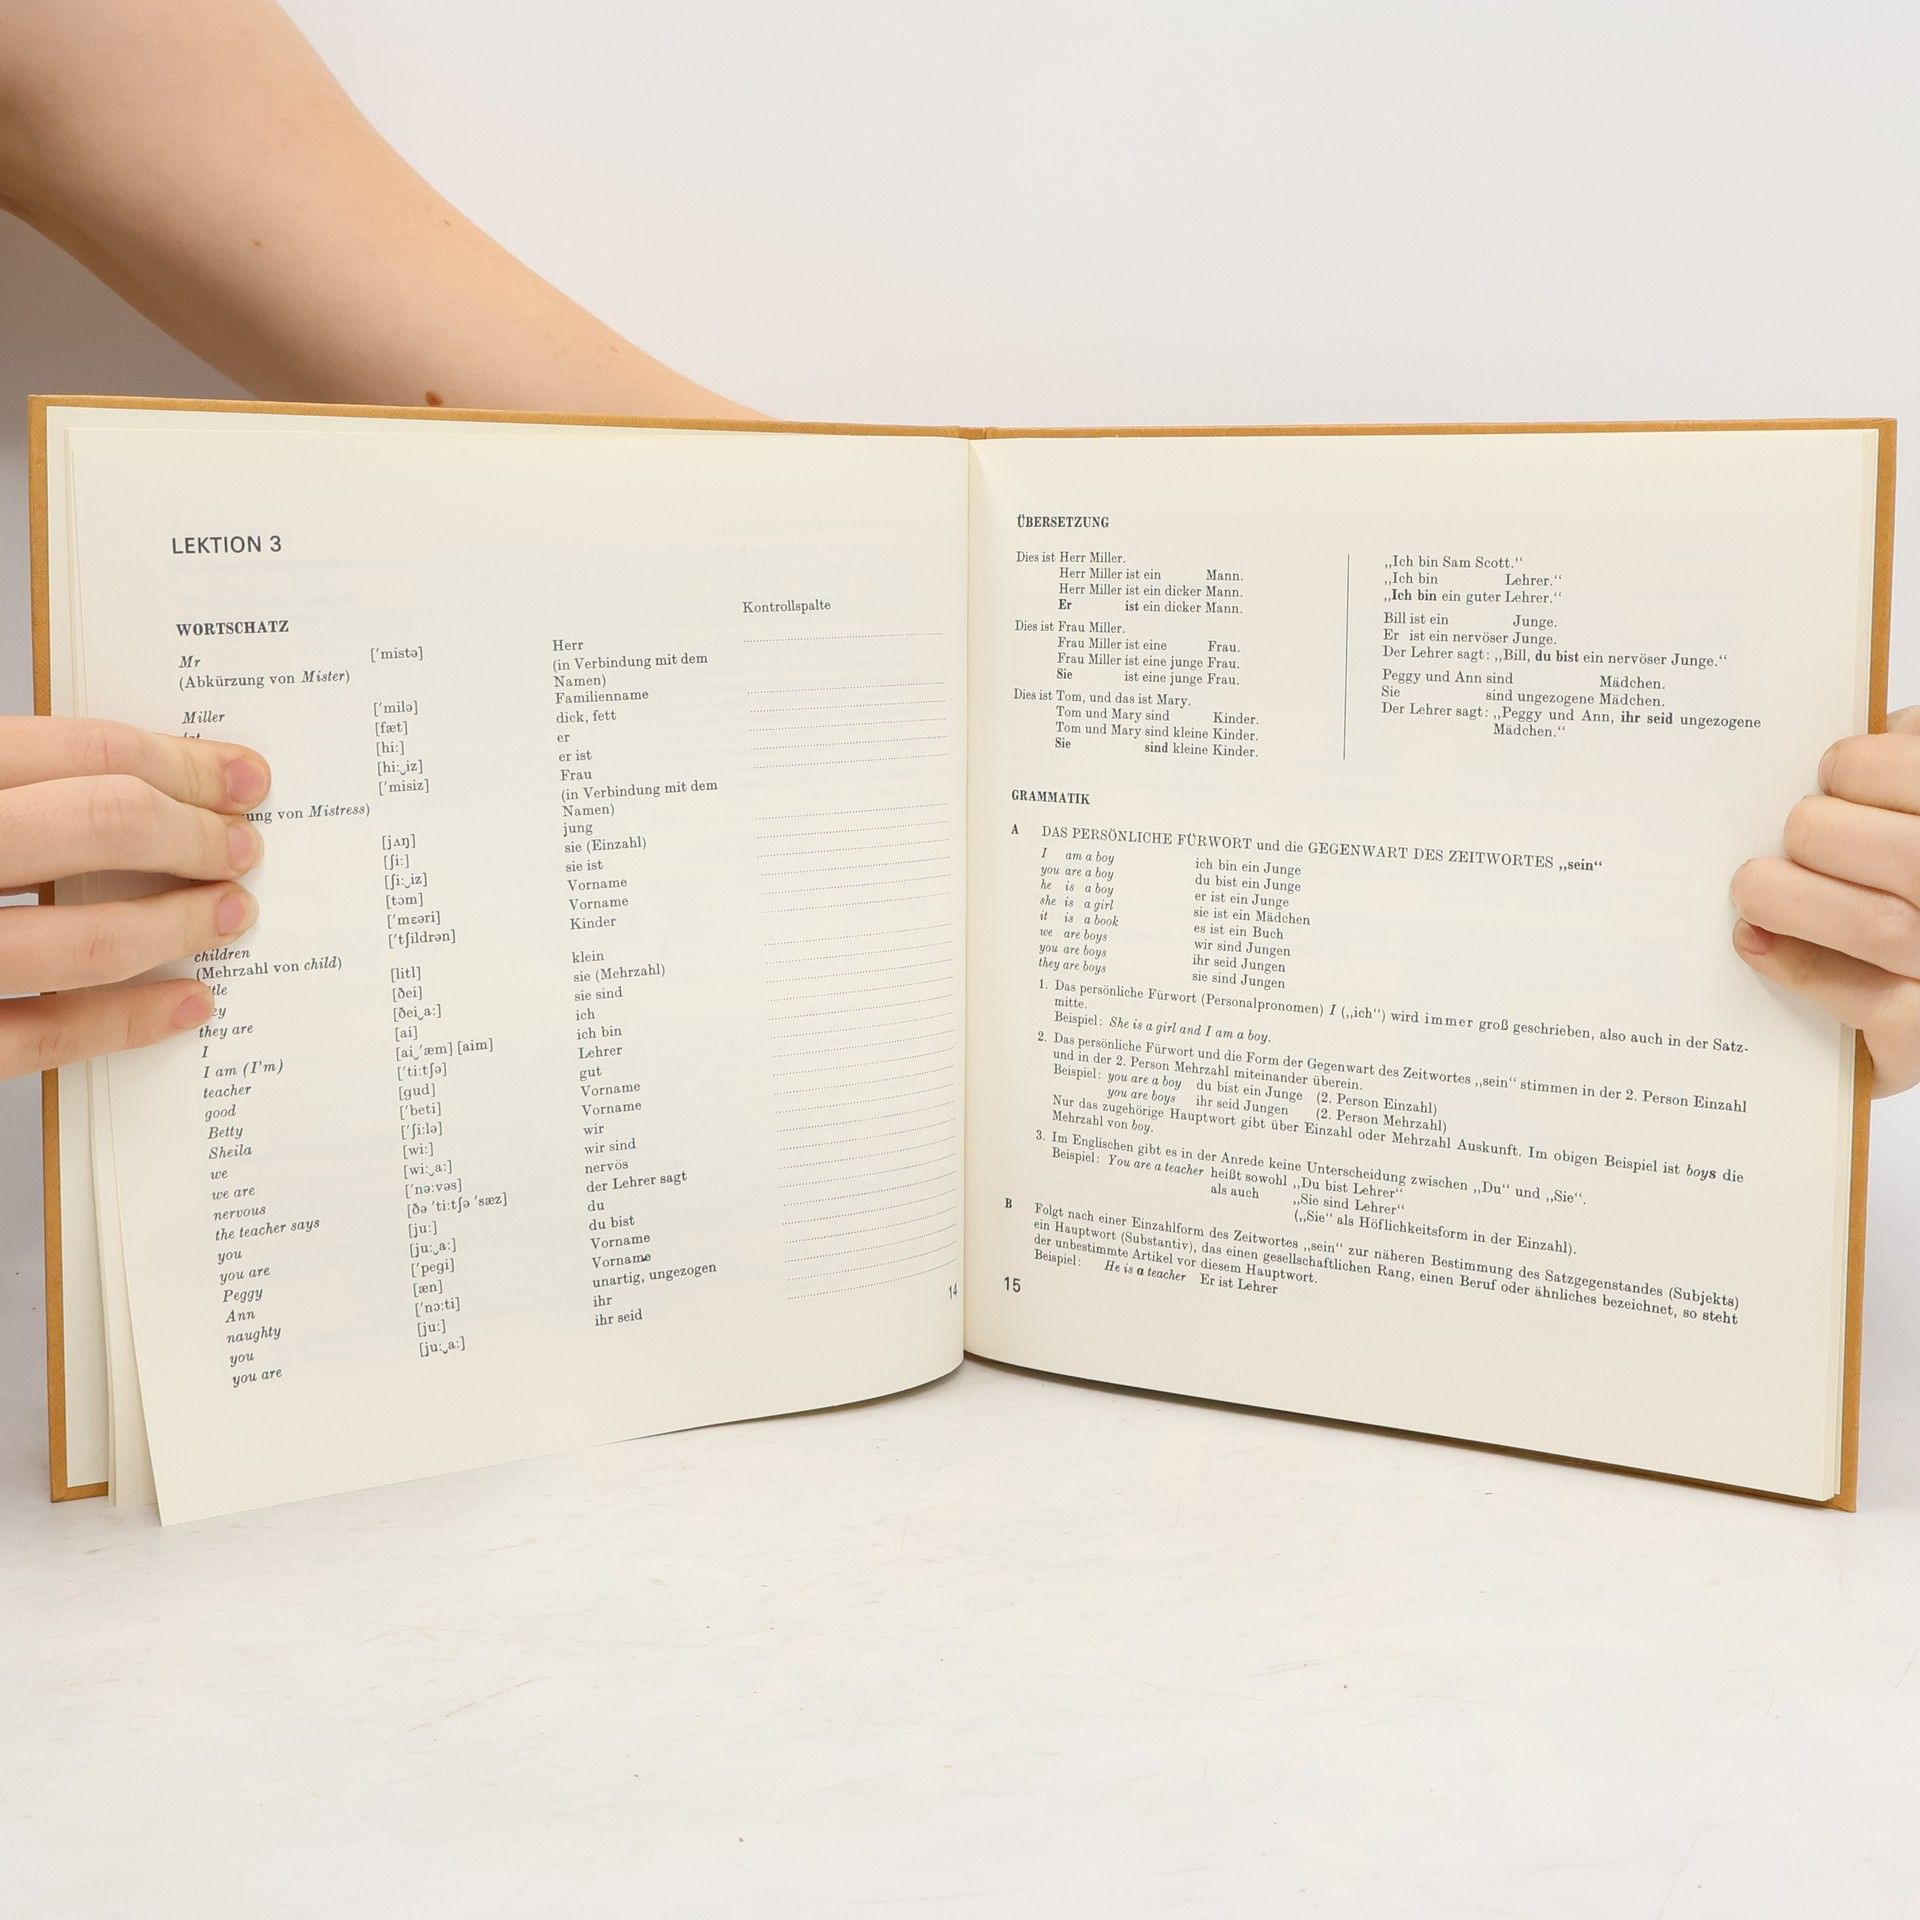 LEKTION 3
Kontrollspalte
WORTSCHATZ
Mr ['mistə] Herr
(Abkürzung von Mister) (in Verbindung mit dem
Namen)
Miller ['milə] Familienname
[fæt] dick, fett
[hi:] er
[hi:‿iz] er ist
['misiz] Frau
von Mistress) (in Verbindung mit dem
Namen)
[jʌŋ] jung
[ʃi:] sie (Einzahl)
[ʃi:‿iz] sie ist
[tɔm] Vorname
['mɛəri] Vorname
children ['tʃildrən] Kinder
(Mehrzahl von child)
[litl] klein
[ðei] sie (Mehrzahl)
they are [ðei‿a:] sie sind
I [ai] ich
I am (I'm) [ai‿'æm] [aim] ich bin
teacher ['ti:tʃə] Lehrer
good [gud] gut
Betty ['beti] Vorname
Sheila ['ʃi:lə] Vorname
we [wi:] wir
we are [wi:‿a:] wir sind
nervous ['nə:vəs] nervös
the teacher says [ðə 'ti:tʃə 'sæz] der Lehrer sagt
you [ju:] du
you are [ju:‿a:] du bist
Peggy ['pegi] Vorname
Ann [æn] Vorname
naughty ['nɔ:ti] unartig, ungezogen
you [ju:] ihr
you are [ju:‿a:] ihr seid
14
ÜBERSETZUNG
Dies ist Herr Miller.
Herr Miller ist ein Mann.
Herr Miller ist ein dicker Mann.
Er ist ein dicker Mann.
Dies ist Frau Miller.
Frau Miller ist eine Frau.
Frau Miller ist eine junge Frau.
Sie ist eine junge Frau.
Dies ist Tom, und das ist Mary.
Tom und Mary sind Kinder.
Tom und Mary sind kleine Kinder.
Sie sind kleine Kinder.
„Ich bin Sam Scott.“
„Ich bin Lehrer.“
„Ich bin ein guter Lehrer.“
Bill ist ein Junge.
Er ist ein nervöser Junge.
Der Lehrer sagt: „Bill, du bist ein nervöser Junge.“
Peggy und Ann sind Mädchen.
Sie sind ungezogene Mädchen.
Der Lehrer sagt: „Peggy und Ann, ihr seid ungezogene
Mädchen.“
GRAMMATIK
A DAS PERSÖNLICHE FÜRWORT und die GEGENWART DES ZEITWORTES „sein“
I am a boy ich bin ein Junge
you are a boy du bist ein Junge
he is a boy er ist ein Junge
she is a girl sie ist ein Mädchen
it is a book es ist ein Buch
we are boys wir sind Jungen
you are boys ihr seid Jungen
they are boys sie sind Jungen
1. Das persönliche Fürwort (Personalpronomen) I („ich“) wird immer groß geschrieben, also auch in der Satz-
mitte.
Beispiel: She is a girl and I am a boy.
2. Das persönliche Fürwort und die Form der Gegenwart des Zeitwortes „sein“ stimmen in der 2. Person Einzahl
und in der 2. Person Mehrzahl miteinander überein.
Beispiel: you are a boy du bist ein Junge (2. Person Einzahl)
you are boys ihr seid Jungen (2. Person Mehrzahl)
Nur das zugehörige Hauptwort gibt über Einzahl oder Mehrzahl Auskunft. Im obigen Beispiel ist boys die
Mehrzahl von boy.
3. Im Englischen gibt es in der Anrede keine Unterscheidung zwischen „Du“ und „Sie“.
Beispiel: You are a teacher heißt sowohl „Du bist Lehrer“
als auch „Sie sind Lehrer“
(„Sie“ als Höflichkeitsform in der Einzahl).
B Folgt nach einer Einzahlform des Zeitwortes „sein“ zur näheren Bestimmung des Satzgegenstandes (Subjekts)
ein Hauptwort (Substantiv), das einen gesellschaftlichen Rang, einen Beruf oder ähnliches bezeichnet, so steht
der unbestimmte Artikel vor diesem Hauptwort.
Beispiel: He is a teacher Er ist Lehrer
15